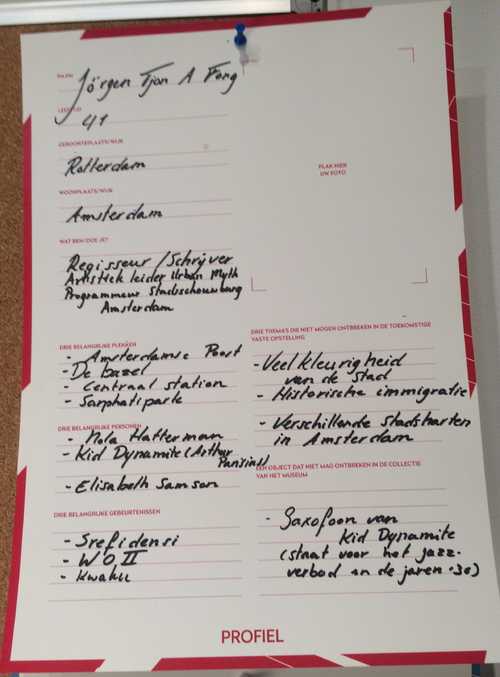 NAAM
Jörgen Tjon A Fong
LEEFTIJD
41
GEBOORTEPLAATS/WIJK
Rotterdam
WOONPLAATS/WIJK
Amsterdam
WAT BEN/DOE JE?
Regisseur/Schrijver
Artistiek leider Urban Myth
Programmeur Stadsschouwburg
Amsterdam
PLAK HIER
UW FOTO
DRIE BELANGRIJKE PLEKKEN
- Amsterdamse Poort
- De bazel
- Centraal station
- Sarphatipark
DRIE BELANGRIJKE PERSONEN
- Nola Hatterman
- Kid Dynamite (Arthur
Parisius)
- Elisabeth Samson
DRIE BELANGRIJKE GEBEURTENISSEN
- Srefidensi
- WO II
- Kwaku
DRIE THEMA'S DIE NIET MOGEN ONTBREKEN IN DE TOEKOMSTIGE
VASTE OPSTELLING
- Veelkleurigheid
van de stad
- Historische immigratie
- Verschillende stadsharten
in Amsterdam
EEN OBJECT DAT NIET MAG ONTBREKEN IN DE COLLECTIE
VAN HET MUSEUM
- Saxofoon van
Kid Dynamite
(staat voor het jazz-
verbod in de jaren '30)
PROFIEL